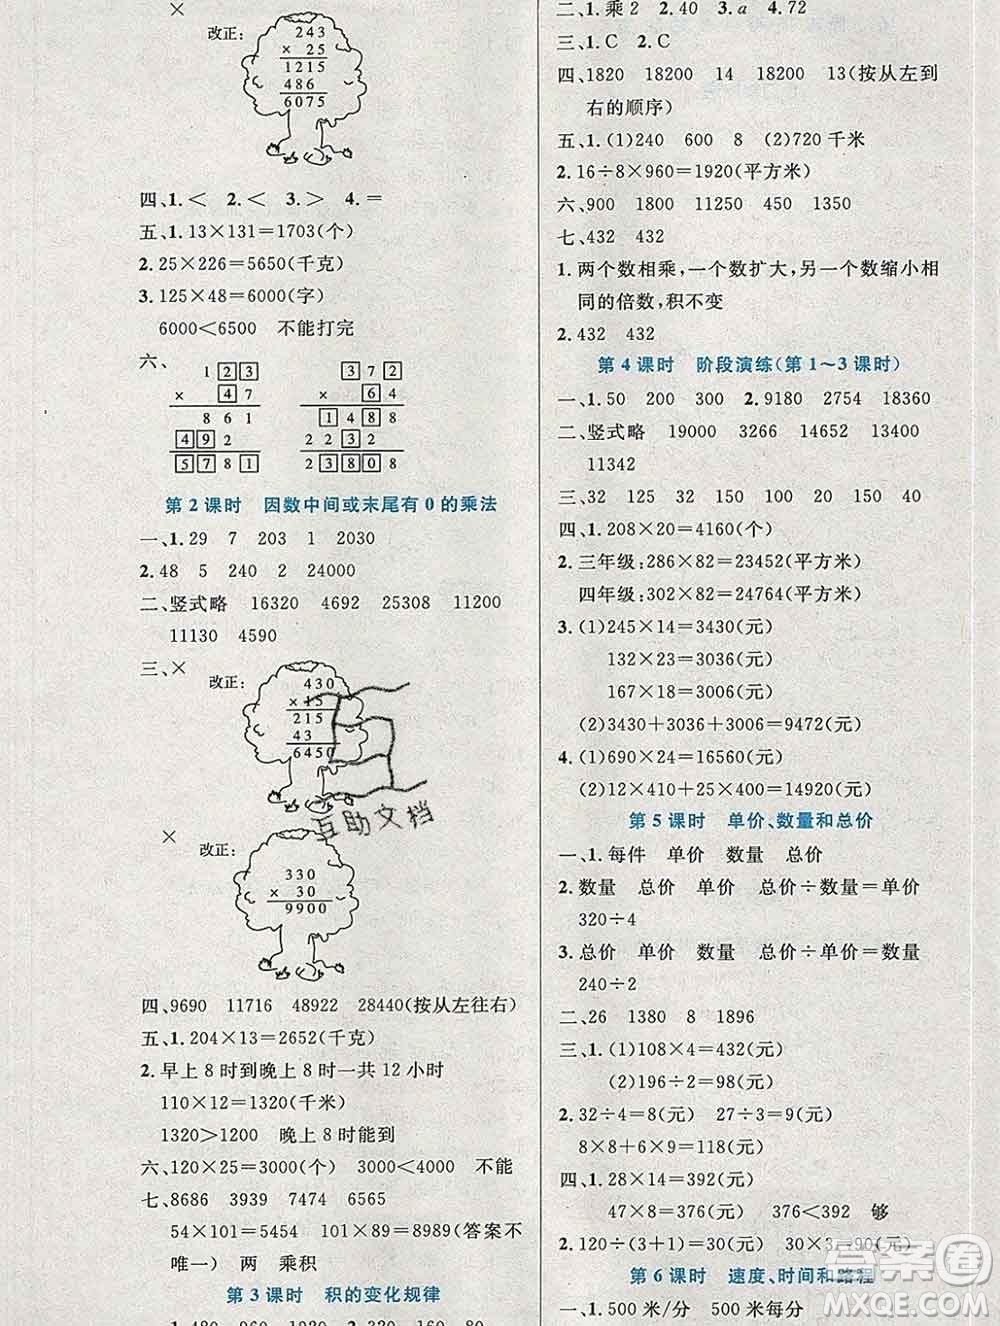 ×
改正:
243
× 25
1215
486
6075
四、1.< 2.< 3.> 4.=
五、1.13×131=1703(个)
2.25×226=5650(千克)
3.125×48=6000(字)
6000<6500 不能打完
六、
1 2 3
× 4 7
8 6 1
4 9 2
5 7 8 1
3 7 2
× 6 4
1 4 8 8
2 2 3 2
2 3 8 0 8
第 2 课时 因数中间或末尾有 0 的乘法
一、1.29 7 203 1 2030
2.48 5 240 2 24000
二、竖式略 16320 4692 25308 11200
11130 4590
三、×
改正:
430
×15
215
43
6450
互助文档
×
改正:
330
× 30
9900
四、9690 11716 48922 28440(按从左往右)
五、1.204×13=2652(千克)
2.早上 8 时到晚上 8 时一共 12 小时
110×12=1320(千米)
1320>1200 晚上 8 时能到
六、120×25=3000(个) 3000<4000 不能
七、8686 3939 7474 6565
54×101=5454 101×89=8989(答案不
唯一) 两 乘积
第 3 课时 积的变化规律
二、1.乘 2 2.40 3.a 4.72
三、1.C 2.C
四、1820 18200 14 18200 13(按从左到
右的顺序)
五、1.(1)240 600 8 (2)720千米
2.16÷8×960=1920(平方米)
六、900 1800 11250 450 1350
七、432 432
1.两个数相乘,一个数扩大,另一个数缩小相
同的倍数,积不变
2.432 432
第 4 课时 阶段演练(第 1~3 课时)
一、1.50 200 300 2.9180 2754 18360
二、竖式略 19000 3266 14652 13400
11342
三、32 125 32 150 100 20 150 40
四、1.208×20=4160(个)
2.三年级:286×82=23452(平方米)
四年级:302×82=24764(平方米)
3.(1)245×14=3430(元)
132×23=3036(元)
167×18=3006(元)
(2)3430+3036+3006=9472(元)
4.(1)690×24=16560(元)
(2)12×410+25×400=14920(元)
第 5 课时 单价、数量和总价
一、1.每件 单价 数量 总价
2.数量 总价 单价 总价÷数量=单价
320÷4
3.总价 单价 数量 总价÷单价=数量
240÷2
二、26 1380 8 1896
三、1.(1)108×4=432(元)
(2)196÷2=98(元)
2.32÷4=8(元) 27÷3=9(元)
8×8+6×9=118(元)
四、1.28×14=392(元)
47×8=376(元) 376<392 够
2.120÷(3+1)=30(元) 30×3=90(元)
第 6 课时 速度、时间和路程
一、1.500 米/分 500 米每分
答案圈
MXQE.COM